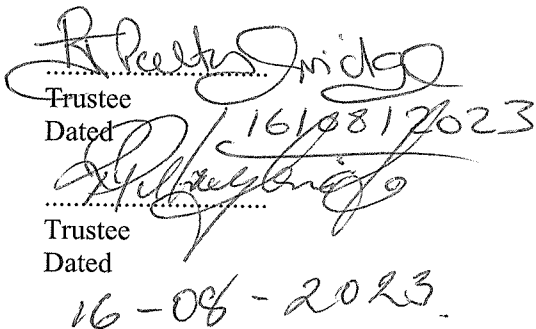 Trustee
Dated 16/08/2023
Trustee
Dated
16-08-2023.